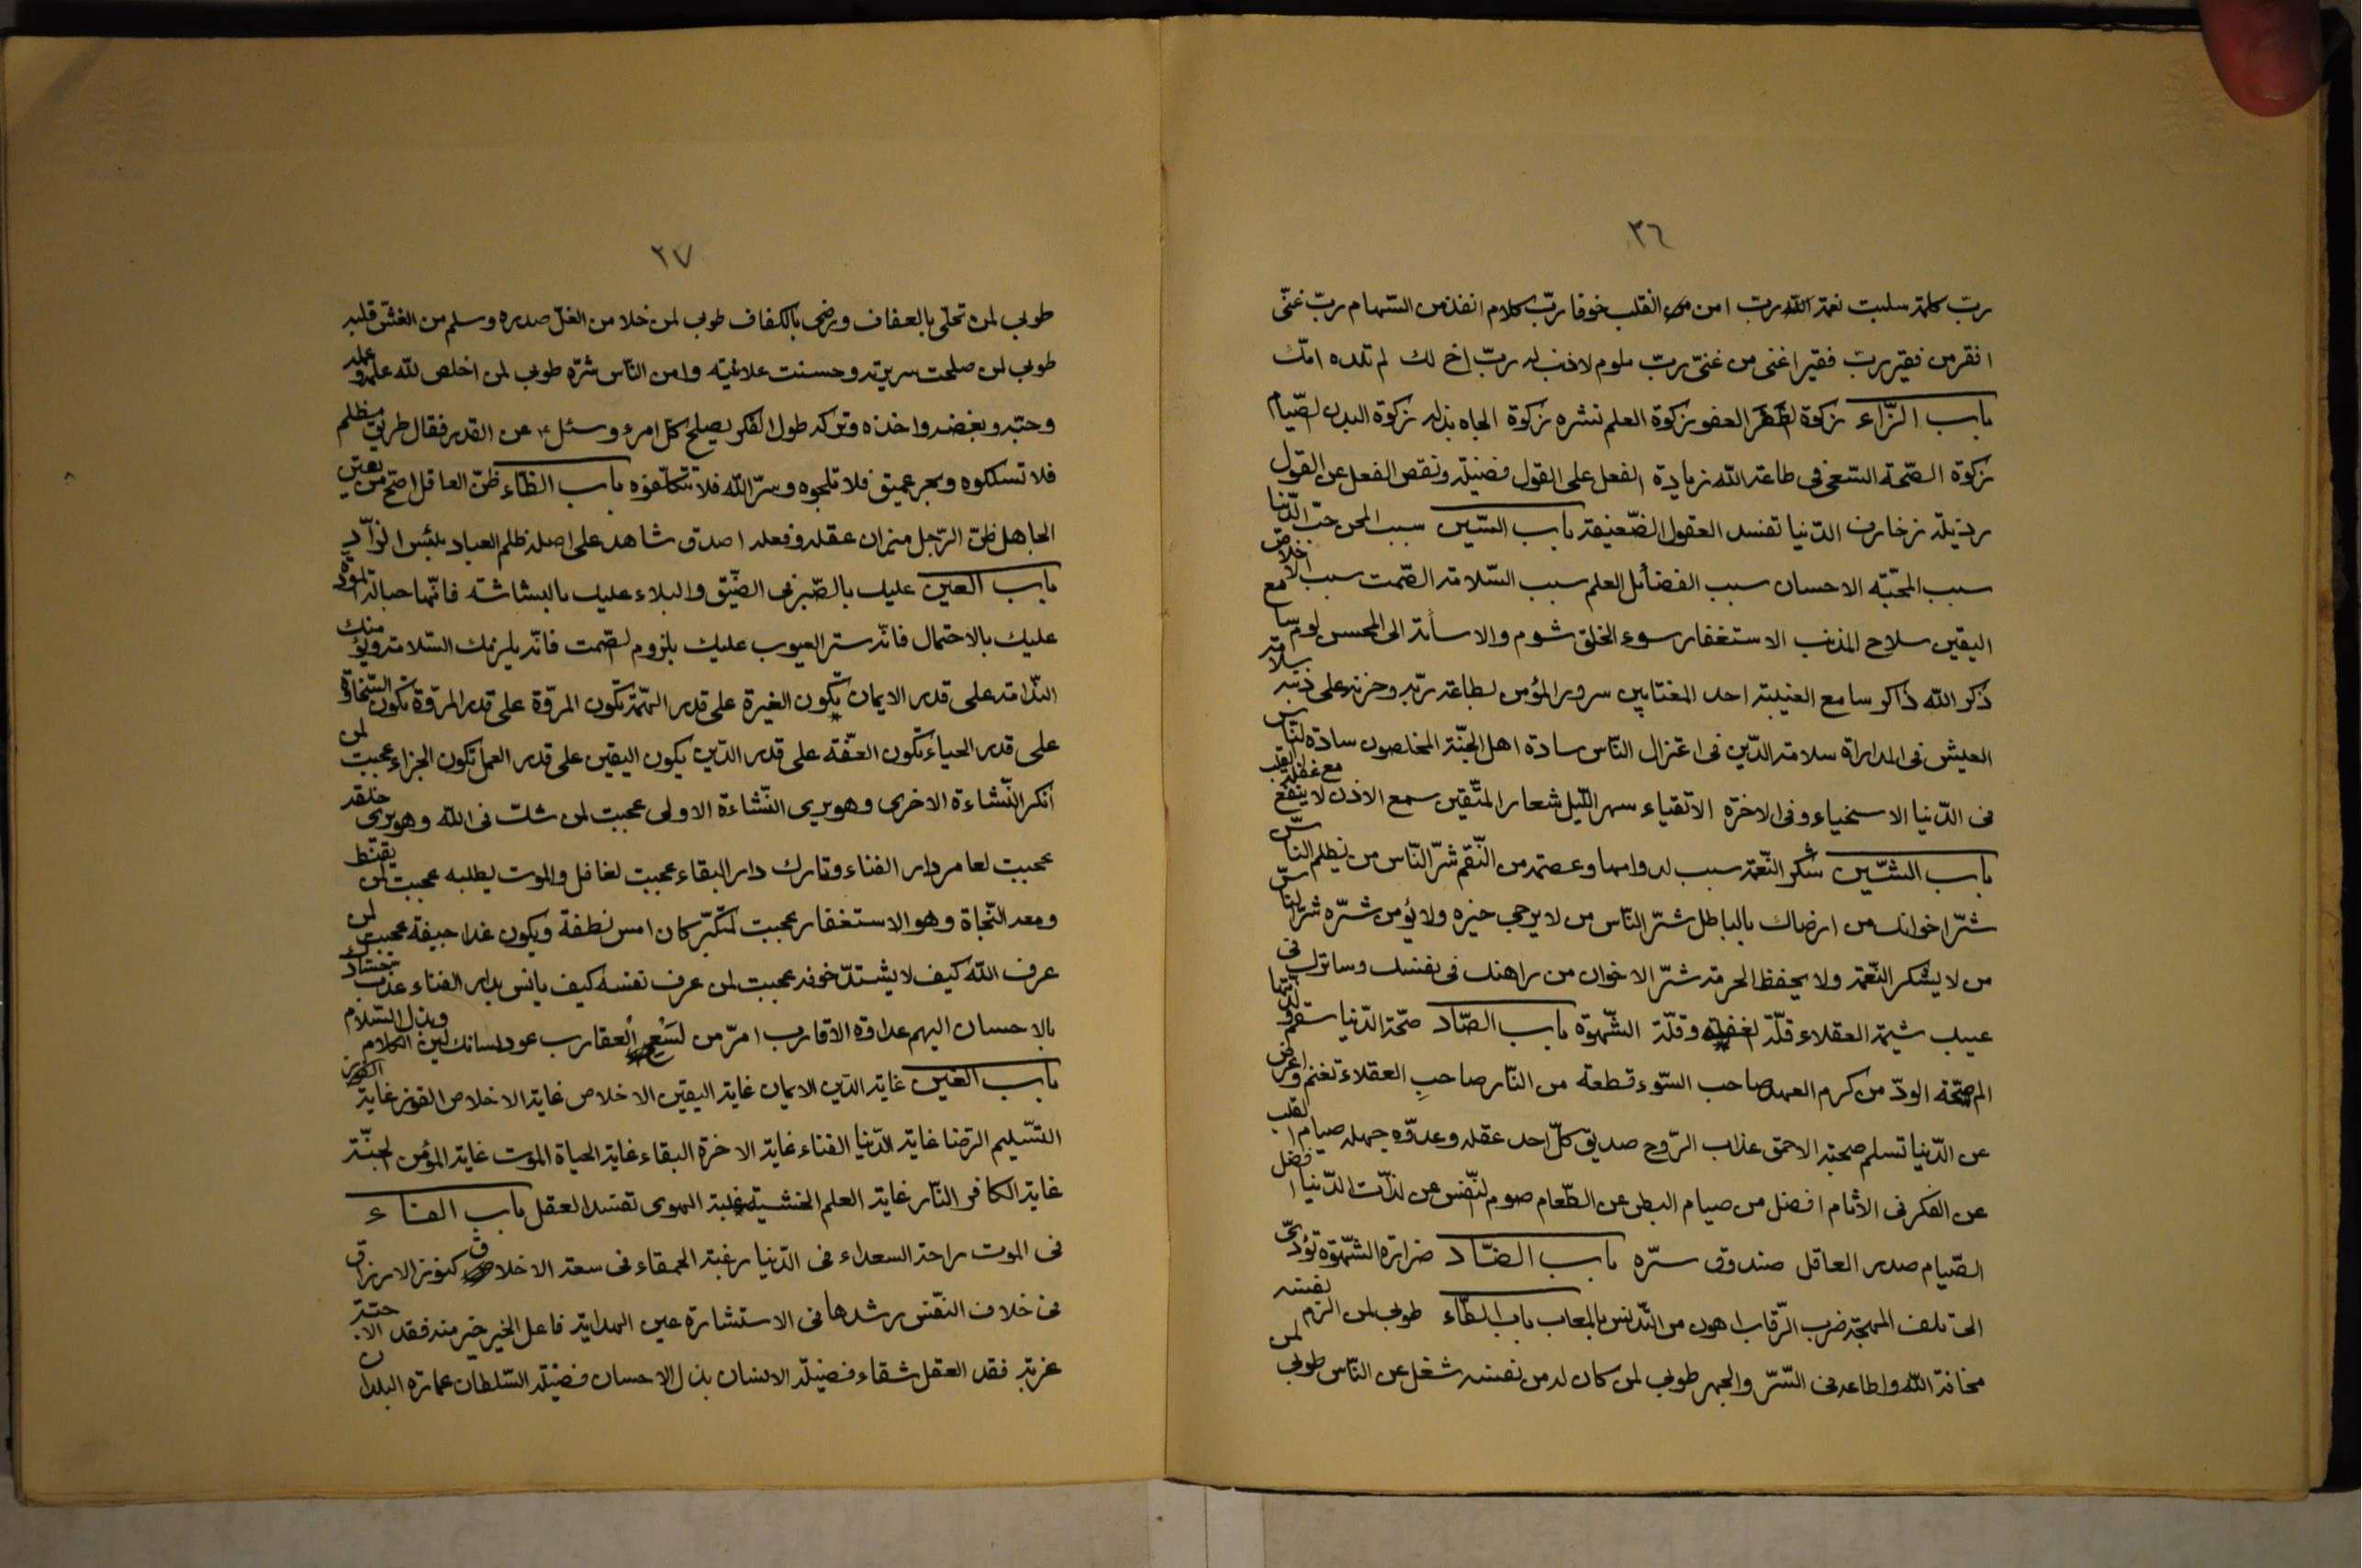 ٣٦
ربّ كلمة سلبت نعمة الله ربّ امن من القلب خوفا ربّ كلام انفذ من السّهام ربّ غنّى
افقر من فقير ربّ فقير اغنى من غنىّ ربّ ملوم لا ذنب له ربّ اخ لك لم تلده امّك
باب الزّاء زكوة الظفر العفو زكوة العلم نشره زكوة الجاه بذله زكوة البدن الصّيام
زكوة الصّحّة السّعى فى طاعة الله زيادة الفعل على القول فضيلة ونقص الفعل عن القول
رذيلة زخارف الدّنيا تفسد العقول الضّعيفة باب السّين سبب المحن حبّ الدّنيا
سبب المحبّة الاحسان سبب الفضائل العلم سبب السّلامة الصّمت سبب الاخلاص
اليقين سلاح المذنب الاستغفار سوء الخلق شوم والاسائة الى المحسن لوم سامع
ذكر الله ذاكر سامع الغيبة احد المغتابين سرور المؤمن بطاعة ربّه وحزنه على ذنبه سلامة
العيش فى المداراة سلامة الدّين فى اعتزال النّاس سادة اهل الجنّة المخلصون سادة النّاس
فى الدّنيا الاسخياء وفى الاخرة الاتقياء سهر اللّيل شعار المتّقين سمع الاذن لا ينفع مع غفلة القلب
باب الشّين شكر النّعمة سبب لدوامها وعصمة من النّقم شرّ النّاس من يظلم النّاس
شرّ اخوانك من ارضاك بالباطل شرّ النّاس من لا يرجى خيره ولا يؤمن شرّه شرّ النّاس
من لا يشكر النّعمة ولا يحفظ الحرمة شرّ الاخوان من راهنك فى نفسك وساترك فى
عيبك شيمة العقلاء قلّة الغفلة وقلّة الشّهوة باب الصّاد صحّة الدّنيا سقم ولذّتها
الم صحّة الودّ من كرم العهد صاحب السّوء قطعة من النّار صاحبِ العقلاء تغنم واعرض
عن الدّنيا تسلم صحبة الاحمق عذاب الرّوح صديق كلّ احد عقله وعدوّه جهله صيام القلب
عن الفكر فى الاثام افضل من صيام البطن عن الطّعام صوم النّفس عن لذّات الدّنيا افضل
الصّيام صدر العاقل صندوق سرّه باب الضّاد ضراوة الشّهوة تؤدّى
الى تلف المهجة ضرب الرّقاب اهون من التّدنّس بالمعاب باب الطّاء طوبى لمن الزم نفسه
مخافة الله واطاعه فى السّرّ والجهر طوبى لمن كان له من نفسه شغل عن النّاس طوبى لمن
٣٧
طوبى لمن تحلّى بالعفاف ورضى بالكفاف طوبى لمن خلا من الغلّ صدره وسلم من الغشّ قلبه
طوبى لمن صلحت سريرته وحسنت علانيته وامن النّاس شرّه طوبى لمن اخلص لله علمه وعمله
وحبّه وبغضه واخذه وتركه طول الفكر يصلح كلّ امرء وسئل ع عن القدر فقال طريق مظلم
فلا تسلكوه وبحر عميق فلا تلجوه وسرّ الله فلا تتكلّفوه باب الظّاء ظنّ العاقل اصحّ من يقين
الجاهل ظنّ الرّجل ميزان عقله وفعله اصدق شاهد على اصله ظلم العباد بئس الزّاد
باب العين عليك بالصّبر فى الضّيق والبلاء عليك بالبشاشة فانّها حبالة المودّة
عليك بالاحتمال فانّه ستر العيوب عليك بلزوم الصّمت فانّه يلزمك السّلامة ويؤمنك
النّدامة على قدر الايمان تكون الغيرة على قدر الهمّة تكون المروّة على قدر المروّة تكون السّخاوة
على قدر الحياء تكون العفّة على قدر الدّين يكون اليقين على قدر العمل تكون الجزاء عجبت لمن
انكر النّشاءة الاخرى وهو يرى النّشاءة الاولى عجبت لمن شك فى الله وهو يرى خلقه
عجبت لعامر دار الفناء وتارك دار البقاء عجبت لغافل والموت يطلبه عجبت لمن يقنط
ومعه النّجاة وهو الاستغفار عجبت لمتكبّر كان امس نطفة ويكون غدا جيفة عجبت لمن
عرف الله كيف لا يشتدّ خوفه عجبت لمن عرف نفسه كيف يانس بدار الفناء
بالاحسان اليهم عداوة الاقارب امرّ من لسع العقارب عود لسانك لين الكلام وبذل السّلام
باب الغين غاية الدّين الايمان غاية اليقين الاخلاص غاية الاخلاص الفوز غاية
التّسليم الرّضا غاية الدّنيا الفناء غاية الاخرة البقاء غاية الحياة الموت غاية المؤمن الجنّة
غاية الكافر النّار غاية العلم الخشية غلبة الهوى تفسد العقل باب الفاء
فى الموت راحة السعداء فى الدّنيا رغبة الحمقاء فى سعة الاخلاق كنوز الارزاق
فى خلاف النفّس رشدها فى الاستشارة عين الهداية فاعل الخير خير منه فقد الاحبّة
غربة فقد العقل شقاء فضيلة الانسان بذل الاحسان فضيلة السّلطان عمارة البلدان